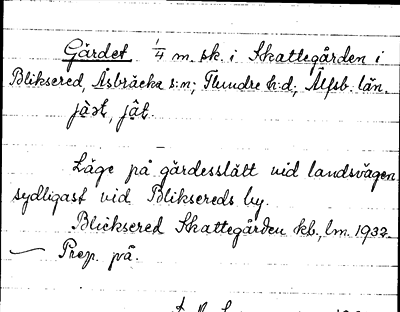 Gärdet 1/4 m. sk. i Skattegården i
Bliksered, Åsbräcka s:n; Flundre h:d, Älfsb. län.
jäət, jät.
Läge på gärdesslätt vid landsvägen
sydligast vid Bliksereds by.
Blicksered Skattegården kb., lm. 1932
— Prep. på.